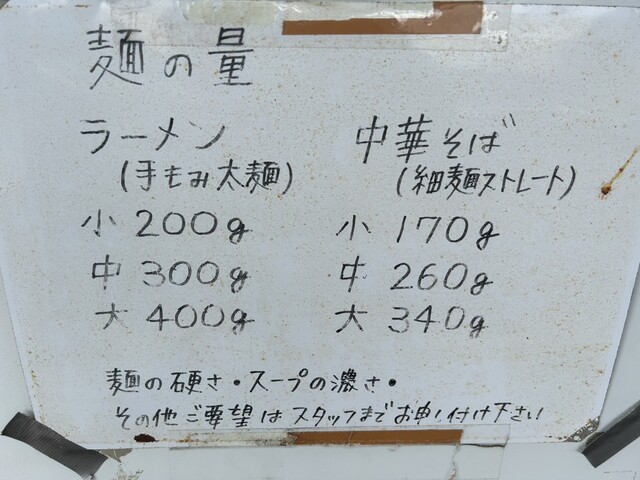 麺の量
ラーメン 中華そば
(手もみ太麺) (細麺ストレート)
小 200g 小 170g
中 300g 中 260g
大 400g 大 340g
麺の硬さ・スープの濃さ・
その他ご要望はスタッフまでお申し付け下さい